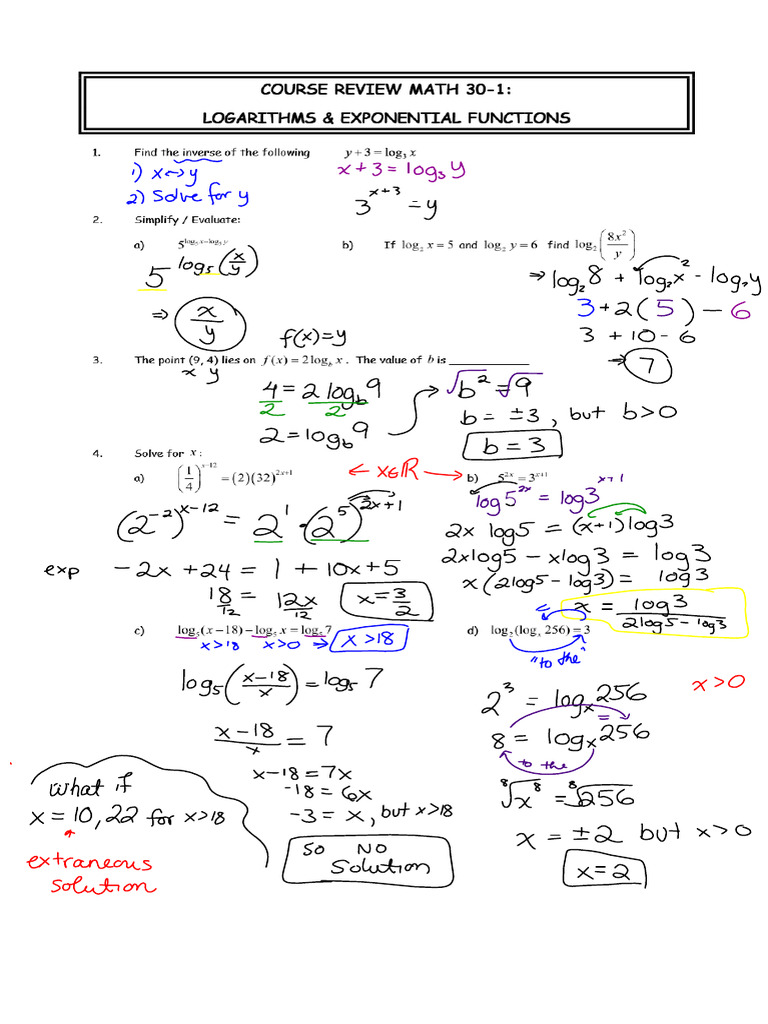 COURSE REVIEW MATH 30-1:
LOGARITHMS & EXPONENTIAL FUNCTIONS
1. Find the inverse of the following y + 3 = log₃ x
1) x↔y
x + 3 = log₃ y
2) Solve for y
3^(x+3) = y
2. Simplify / Evaluate:
a) 5^(log₅ x − log₅ y)
b) If log₂ x = 5 and log₂ y = 6 find log₂(8x²/y)
5^(log₅(x/y))
⇒ log₂8 + log₂x² - log₂y
⇒ x/y
3 + 2(5) - 6
3 + 10 - 6
→ 7
f(x)=y
3. The point (9, 4) lies on f(x) = 2log_b x. The value of b is ____________
x y
4 = 2 log_b 9
2 2
2 = log_b 9
→ √b² = √9
b = ±3, but b>0
b = 3
4. Solve for x:
a) (1/4)^(x−12) = (2)(32)^(2x+1)
← x∈ℝ →
b) 5^(2x) = 3^(x+1)
(2^-2)^(x-12) = 2^1 · (2^5)^(2x+1)
exp -2x + 24 = 1 + 10x + 5
18 = 12x
12 12
x = 3/2
log 5^(2x) = log 3^(x+1)
2x log5 = (x+1) log3
2xlog5 - xlog3 = log3
x(2log5 - log3) = log3
x = log3/(2log5 - log3)
c) log₅(x−18) − log₅ x = log₅ 7
x>18 x>0 → x>18
log₅((x-18)/x) = log₅ 7
(x-18)/x = 7
x-18 = 7x
-18 = 6x
-3 = x, but x>18
so NO
Solution
what if
x = 10, 22 for x>18
extraneous
solution
d) log₂(logₓ 256) = 3
=
"to the"
x>0
2³ = logₓ256
8 = logₓ256
=
to the
⁸√x⁸ = ⁸√256
x = ±2 but x>0
x = 2